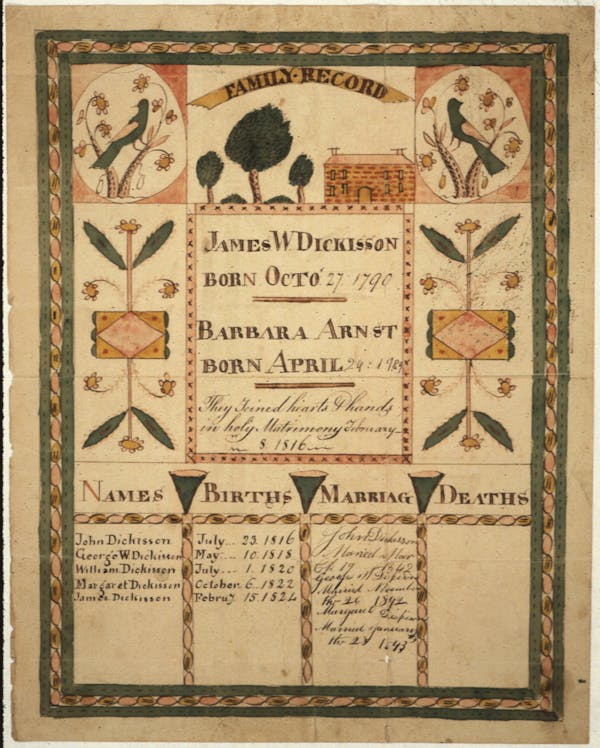 FAMILY·RECORD
JAMES W DICKISSON
BORN OCTO 27 1790
BARBARA ARNST
BORN APRIL
They Joined hearts & hands
in holy Matrimony February
8. 1816
NAMES BIRTHS MARRIAG DEATHS
John Dickisson July 23. 1816
George W Dickisson May 10. 1818
William Dickisson July 1. 1820
Margaret Dickisson October 6. 1822
James Dickisson Februy 15. 1824
John Dickisson
Married
19 1842
George W
Married
the 26 1842
Margaret
Married January
the 28 1843